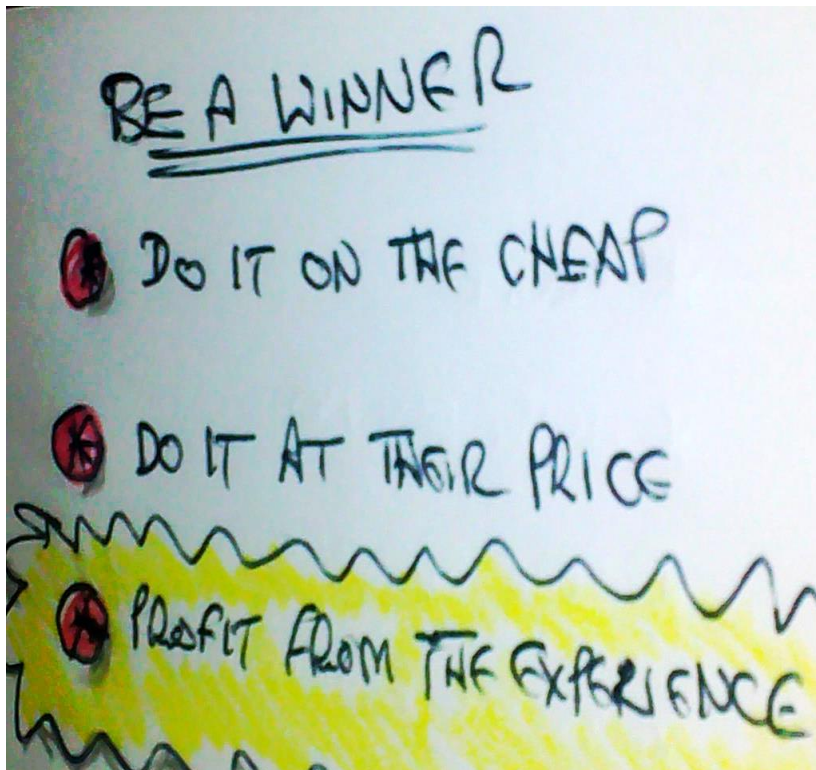 BE A WINNER
DO IT ON THE CHEAP
DO IT AT THEIR PRICE
PROFIT FROM THE EXPERIENCE